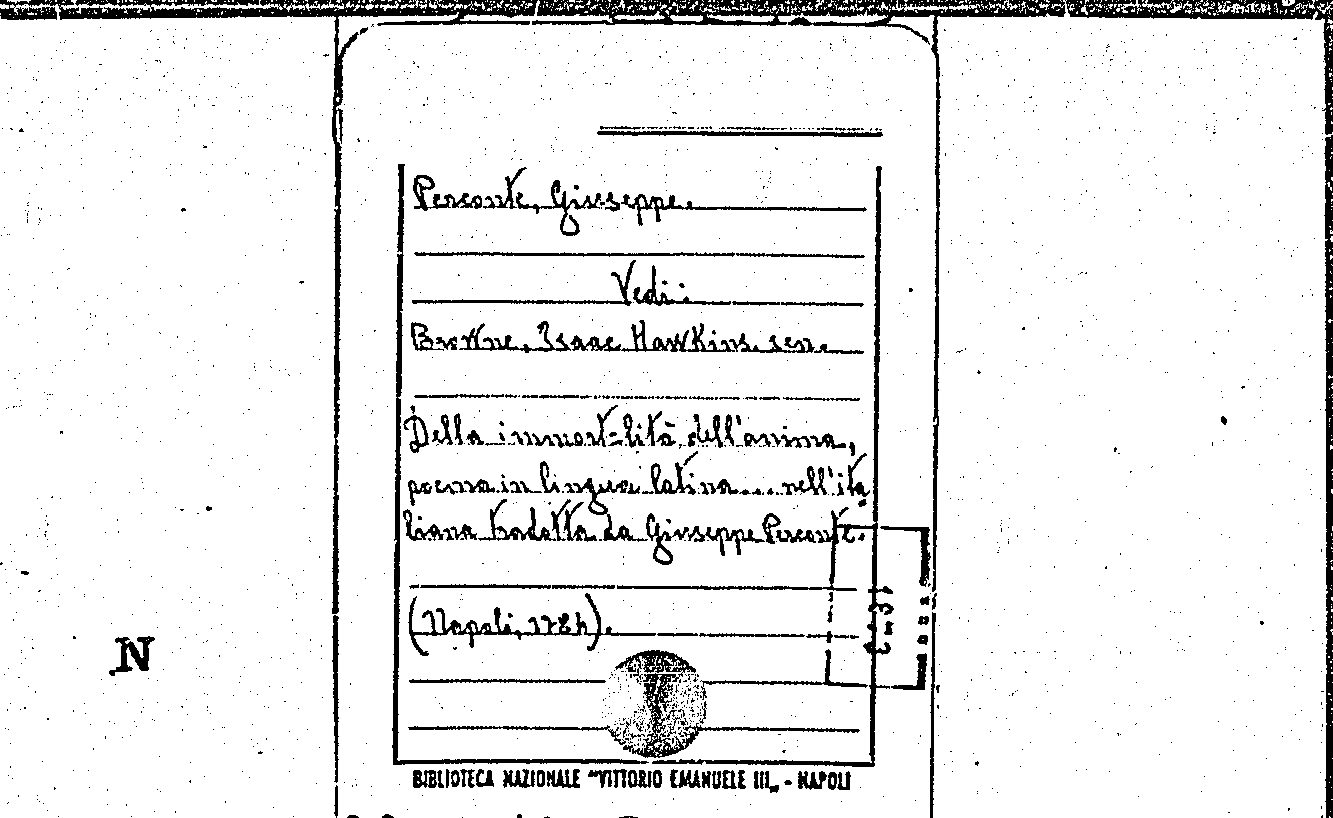 Perconte, Giuseppe.
Vedi:
Browne, Isaac Hawkins. sen.
Della immortalità dell'anima,
poema in lingua latina... nell'ita
liana tradotta da Giuseppe Perconte.
(Napoli,
N
BIBLIOTECA NAZIONALE "VITTORIO EMANUELE III„ - NAPOLI